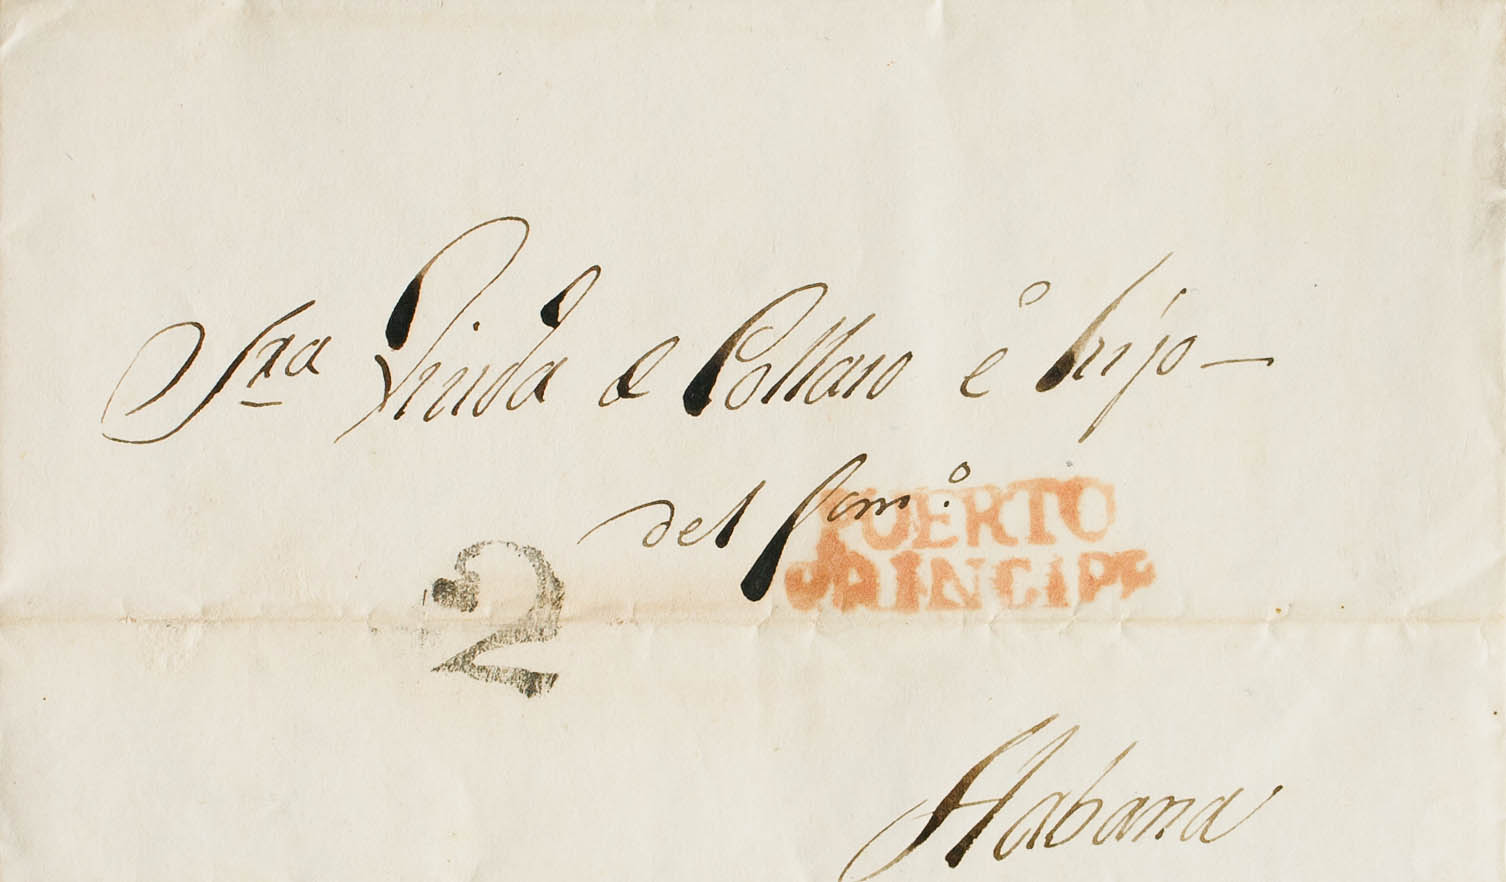 Sra Viuda de Collazo é hijo
del Com.º
PUERTO
PRINCIPE
2
Habana